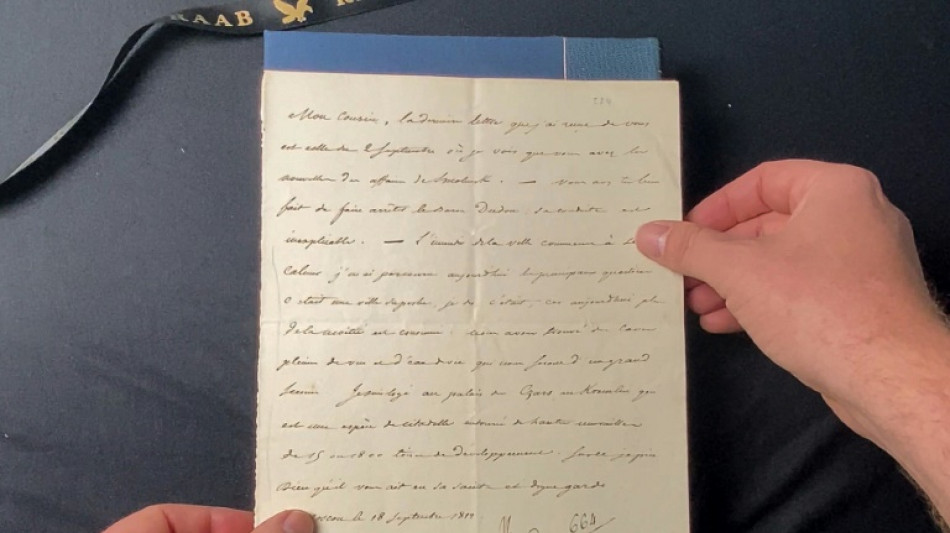 RAAB
224
Mon Cousin, la dernière lettre que j'ai reçue de vous
est celle du 2 Septembre où je vois que vous avez les
nouvelles des affaires de Smolensk. — Vous avez très bien
fait de faire arrêter le sieur Dudon, sa conduite est
inexplicable. — L'incendie de la ville commence à se
calmer, j'ai parcouru aujourd'hui les principaux quartiers
C'était une ville superbe, je dis, c'était, car aujourd'hui plus
de la moitié est consumée. nous avons trouvé des caves
pleines de vin et d'eau de vie qui nous seront d'un grand
secours. Je suis logé au palais des Czars au Kremlin qui
est une espèce de citadelle entourée de hautes murailles
de 15 à 1800 toises de développement. Sur ce je prie
Dieu qu'il vous ait en sa sainte et digne garde
Moscou le 18 Septembre 1812
664